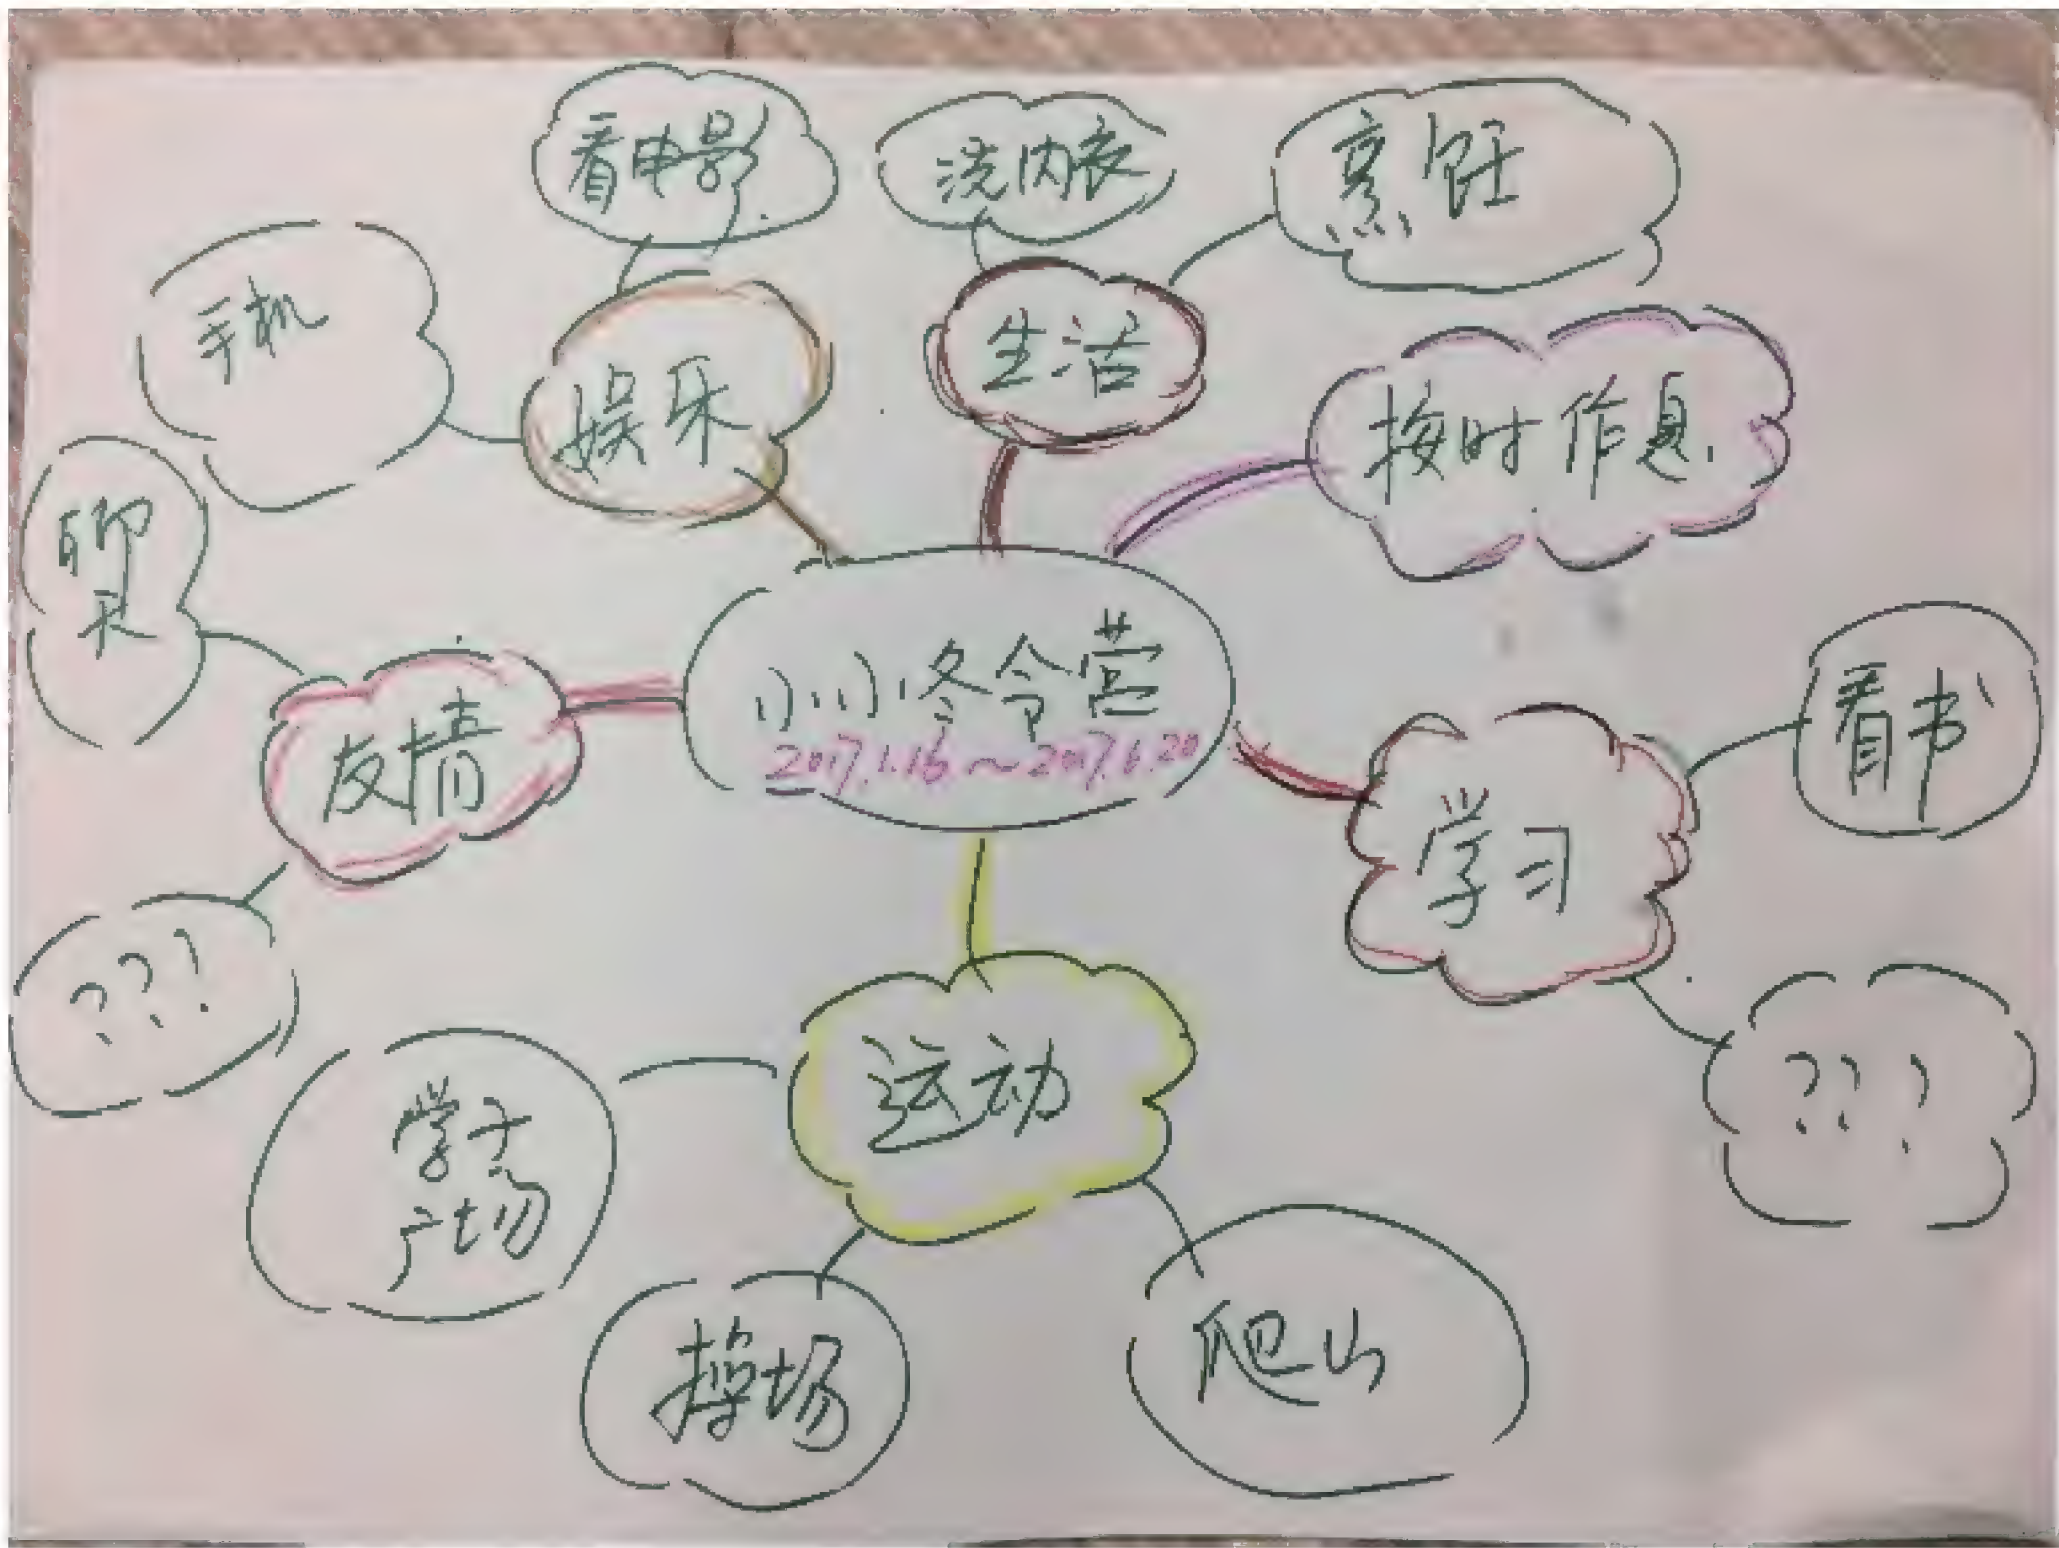 看电影
洗内衣
烹饪
手机
娱乐
生活
按时作息
聊
天
小小冬令营
2017.1.16~2017.1.20
友情
看书
学习
??!
运动
???
学子
广场
操场
爬山